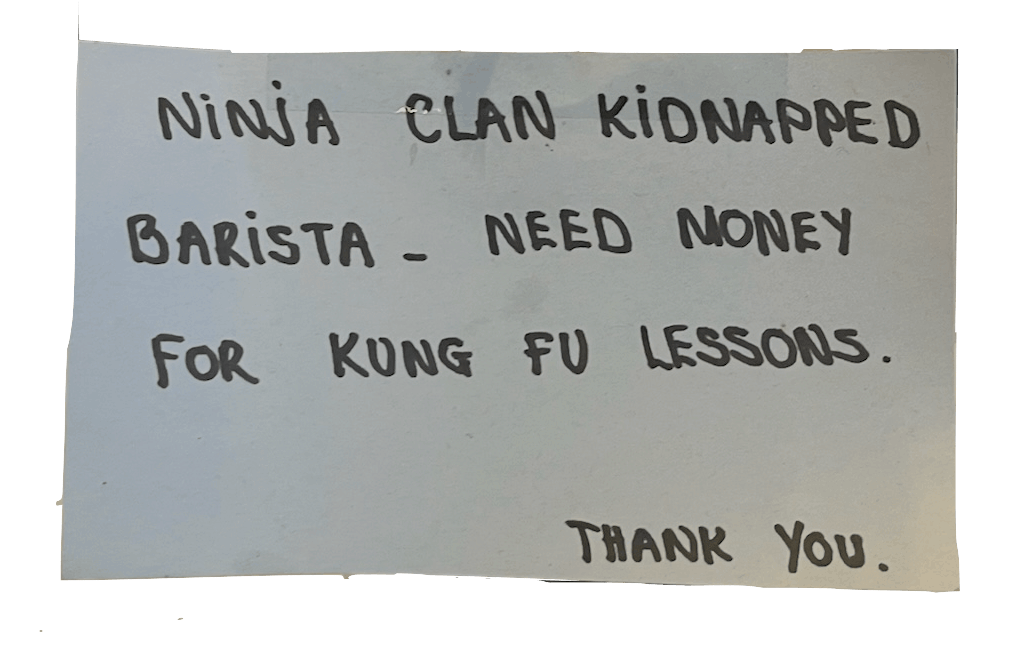 NiNJA CLAN KiDNAPPED
BARiSTA - NEED MONEY
FOR KUNG FU LESSONS.
THANK YOU.